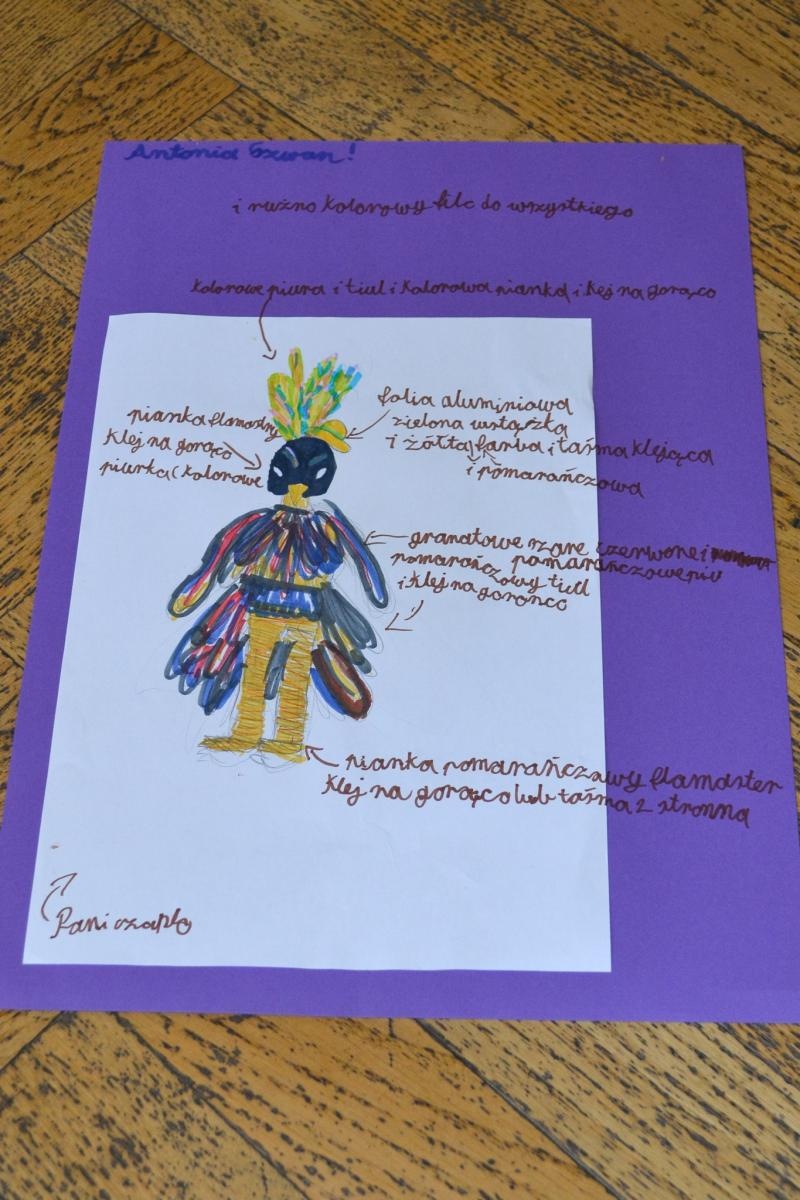 Antonia Szwan!
i rużno kolorowy filc do wszystkiego
kolorowe piura i tiul i kolorowa pianka i klej na gorąco
pianka flamastry
klej na gorąco
piurka (kolorowe
folia aluminiowa
zielona wstążka
i żółta farba i taśma klejąca
i pomarańczowa
granatowe szare czerwone i
pomarańczowe piu
pomarańczowy tiul
i klej na goronco
pianka pomarańczowy flamaster
klej na gorąco lub taśma 2 stronna
Pani czapla